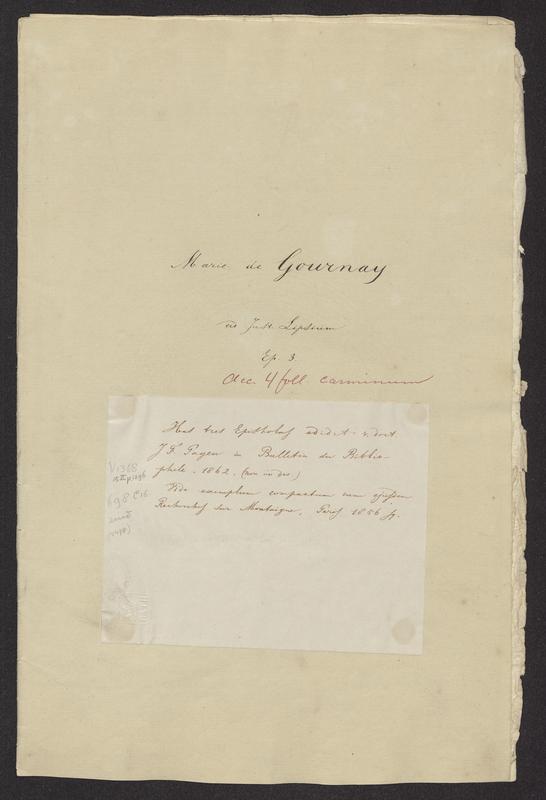 Marie de Gournay
ad Just. Lipsium
Ep. 3.
Acc. 4 foll. carminum
Has tres Epistolas edidit v. doct.
J. F. Payen in Bulletin du Biblio-
phile. 1862. (
Vide exemplum compactum cum ejusdem
Recherches sur Montaigne. Paris 1856 sq.
V1368
698